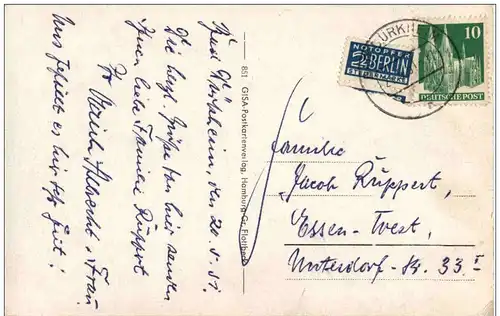 Bad Dürkheim, den 20.5.51.
Die herzl. Grüße von hier senden
Ihnen liebe Familie Ruppert
Ihr Ulrich Albrecht u. Frau
Uns gefällt es hier sehr gut!
851 GISA-Postkartenverlag, Hamburg-Gr. Flottbek
NOTOPFER
2 BERLIN
STEUERMARKE
ÜRKH
10
DEUTSCHE POST
Familie
Jacob Ruppert,
Essen-West,
Unterdorf-Str. 33 I